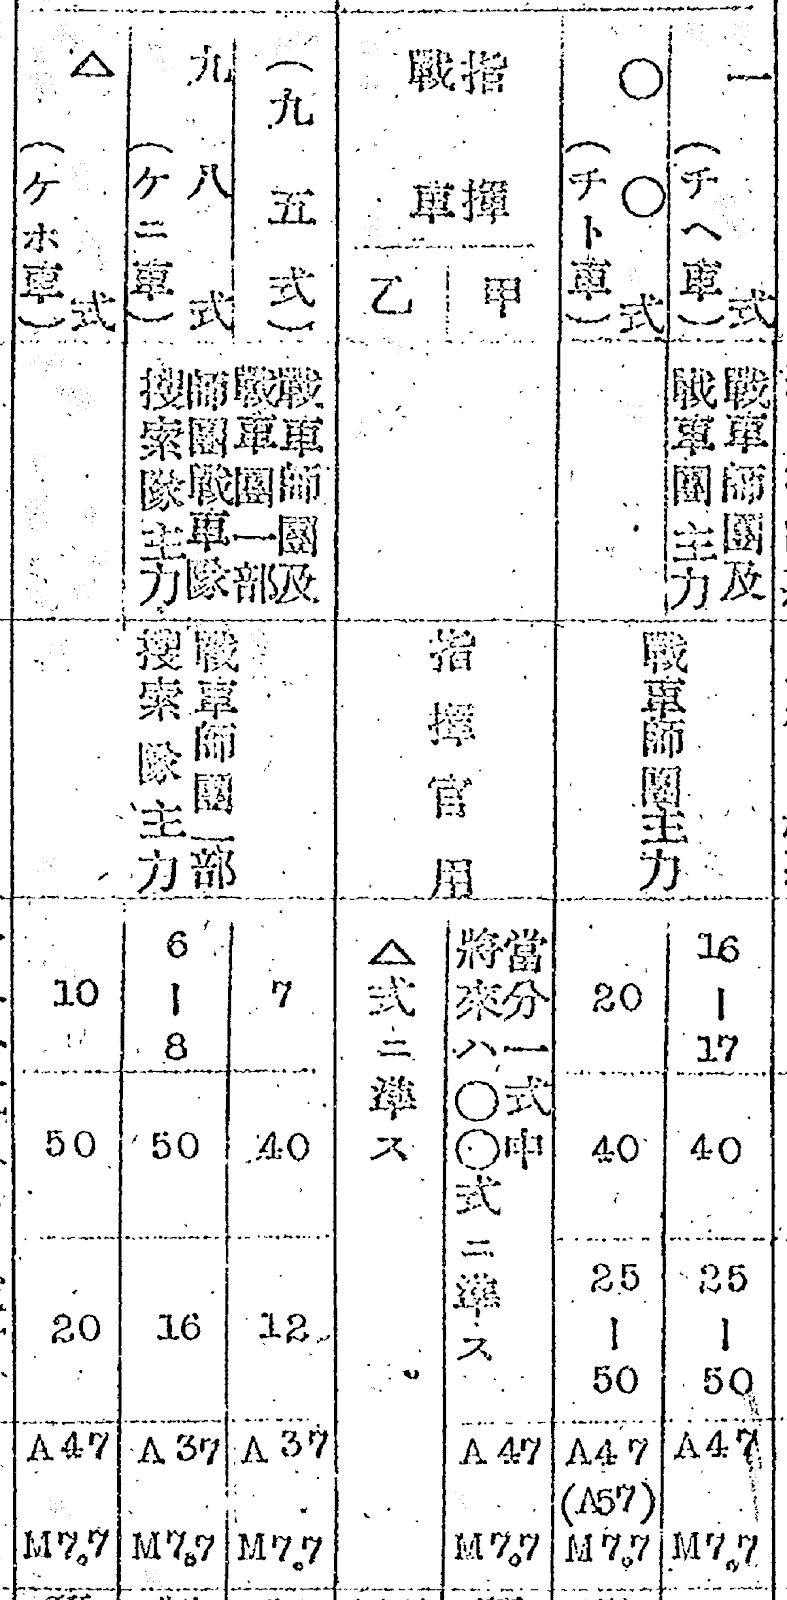 一式
(チヘ車)
戰車師團及
戰車團主力
16
ー
17
40
25
ー
50
A47
M7.7
〇〇式
(チト車)
戰車師團主力
20
40
25
ー
50
A47
(A57)
M7.7
指揮
戰車
甲
乙
指揮官用
當分一式中
將來ハ〇〇式ニ準ス
A47
M7.7
△式ニ準ス
(九五式)
戰車師團及
戰車團一部
師團戰車隊
搜索隊主力
戰車師團一部
搜索隊主力
7
40
12
A37
M7.7
九八式
(ケニ車)
6
ー
8
50
16
A37
M7.7
△式
(ケホ車)
10
50
20
A47
M7.7